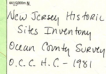 New Jersey Historic
Sites Inventory
Ocean County Survey
O.C.C.H.C - 1981